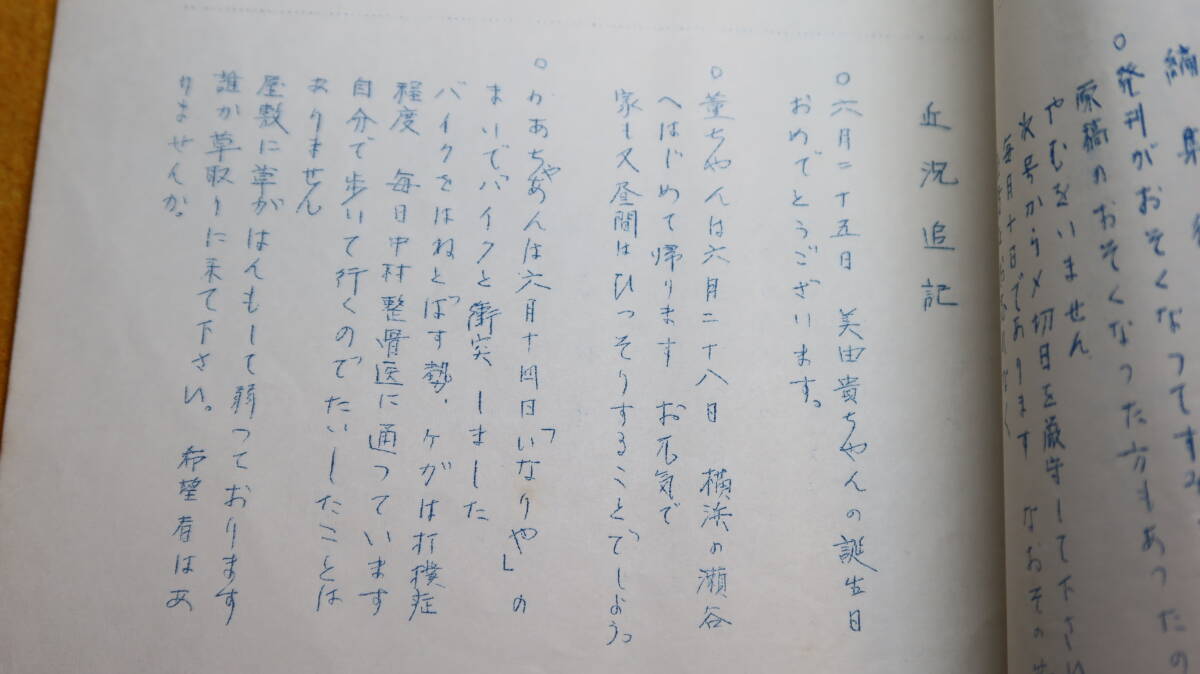 編集後
○発刊がおそくなってすみ
原稿のおそくなった方もあったの
やむをいません
次号から〆切日を厳守して下さい
毎月十日であります なおその
近況追記
○六月二十五日 美由貴ちゃんの誕生日
おめでとうございます。
○董ちゃんは六月二十八日 横浜の瀬谷
へはじめて帰ります お元気で
家も又昼間はひっそりすることでしょう。
○かあちゃあんは六月十四日「いなりや」の
まいでバイクと衝突しました
バイクをはねとばす勢、ケガは打撲症
程度 毎日中村整骨医に通っています
自分で歩いて行くのでたいしたことは
ありません
屋敷に草がはんもして弱っております
誰か草取りに来て下さい。 希望者はあ
りませんか。